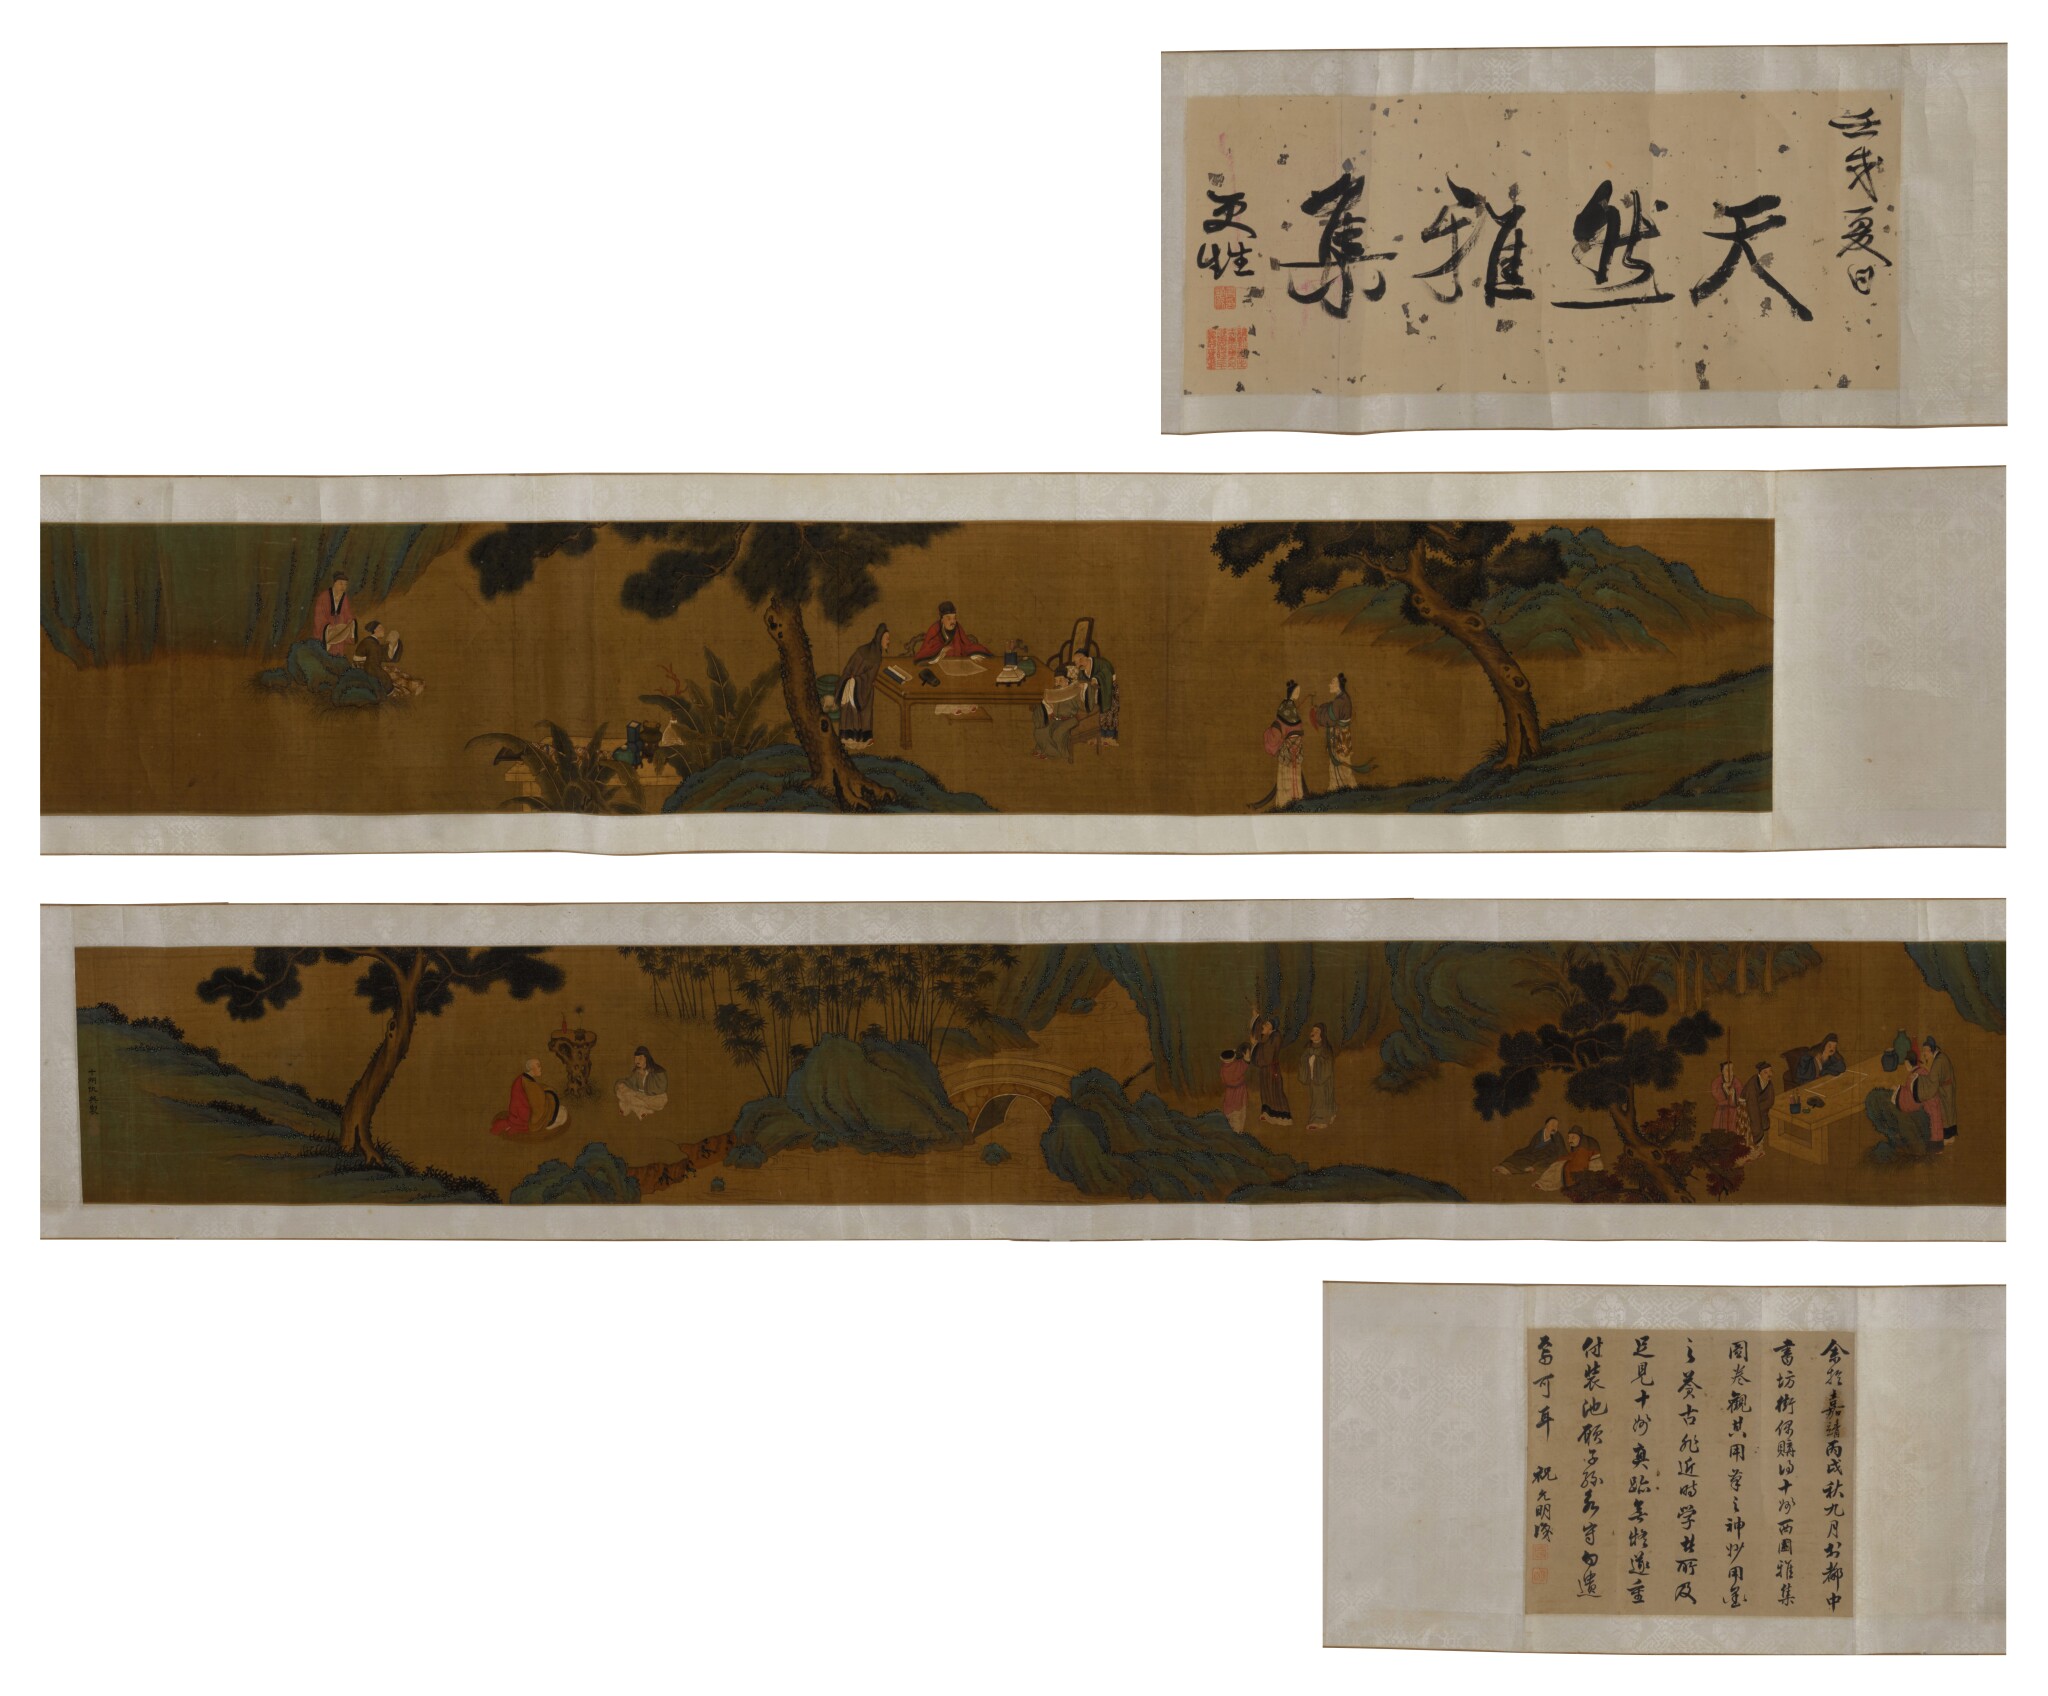 壬戌夏日
天然雅集
更甡
十州仇英製
余於嘉靖丙戌秋九月於都中
書坊街偶購得十州西園雅集
圖卷觀其用筆之神妙用墨
之蒼古非近時學者所及
足見十州真跡無疑遂重
付裝池願子孫永守勿遺
棄可耳 祝允明識